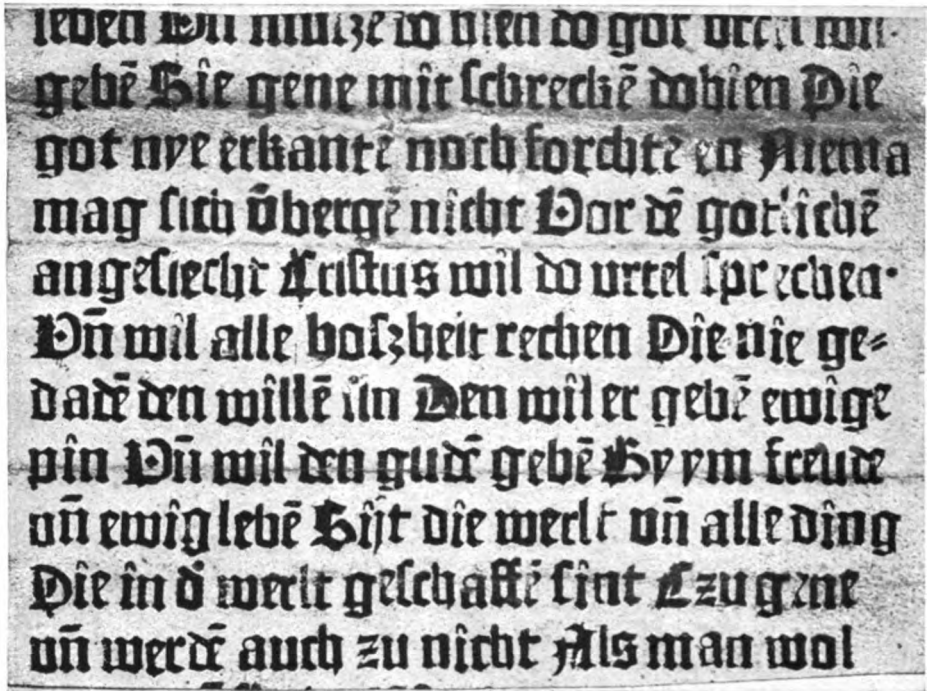 leben Vñ do hien do got wil
gebē Sie gene mit ſchreckē dohien Die
got nye erkantē noch forchtē en Niema
mag ſich v̄bergē nicht Vor dē gotlichē
angeſiecht Criſtus wil do vrtel ſprechen·
Vñ wil alle boſzheit rechen Die nie ge⸗
dadē den willē ſin Den wil er gebē ewige
pin Vñ wil den gudē gebē By ym freude
vñ ewig lebē Sijt die werlt vñ alle ding
Die in d̄ werlt geſchaffē ſint Czu gene
vñ werdē auch zu nicht Als man wol